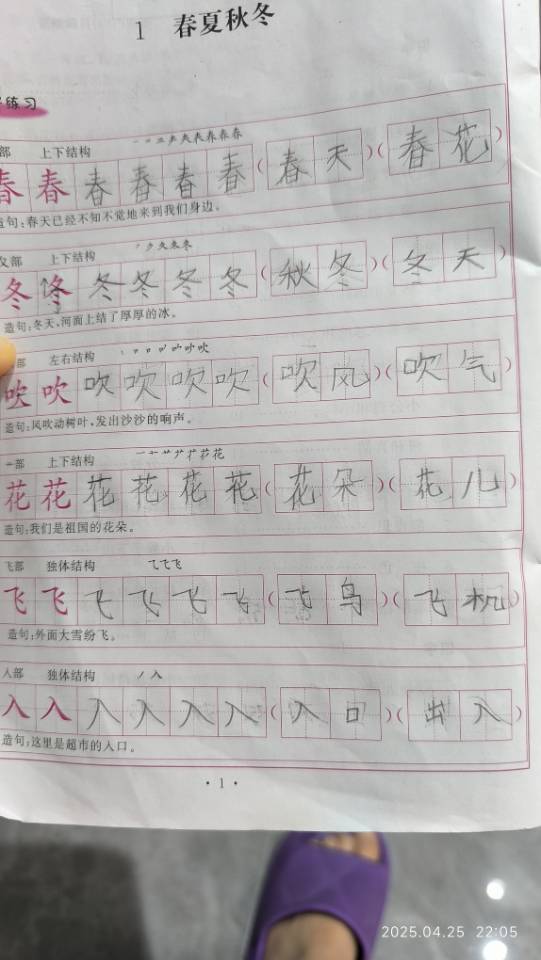 1 春夏秋冬
练习
部 上下结构
春 春 春 春 春 春 (春天)(春花)
造句:春天已经不知不觉地来到我们身边。
夂部 上下结构
冬 冬 冬 冬 冬 冬 (秋冬)(冬天)
造句:冬天,河面上结了厚厚的冰。
部 左右结构
吹 吹 吹 吹 吹 吹 (吹风)(吹气)
造句:风吹动树叶,发出沙沙的响声。
部 上下结构
花 花 花 花 花 花 (花朵)(花儿)
造句:我们是祖国的花朵。
飞部 独体结构
飞 飞 飞 飞 飞 飞 (飞鸟)(飞机)
造句:外面大雪纷飞。
人部 独体结构 丿入
入 入 入 入 入 入 (入口)(出入)
造句:这里是超市的入口。
·1·
2025.04.25 22:05